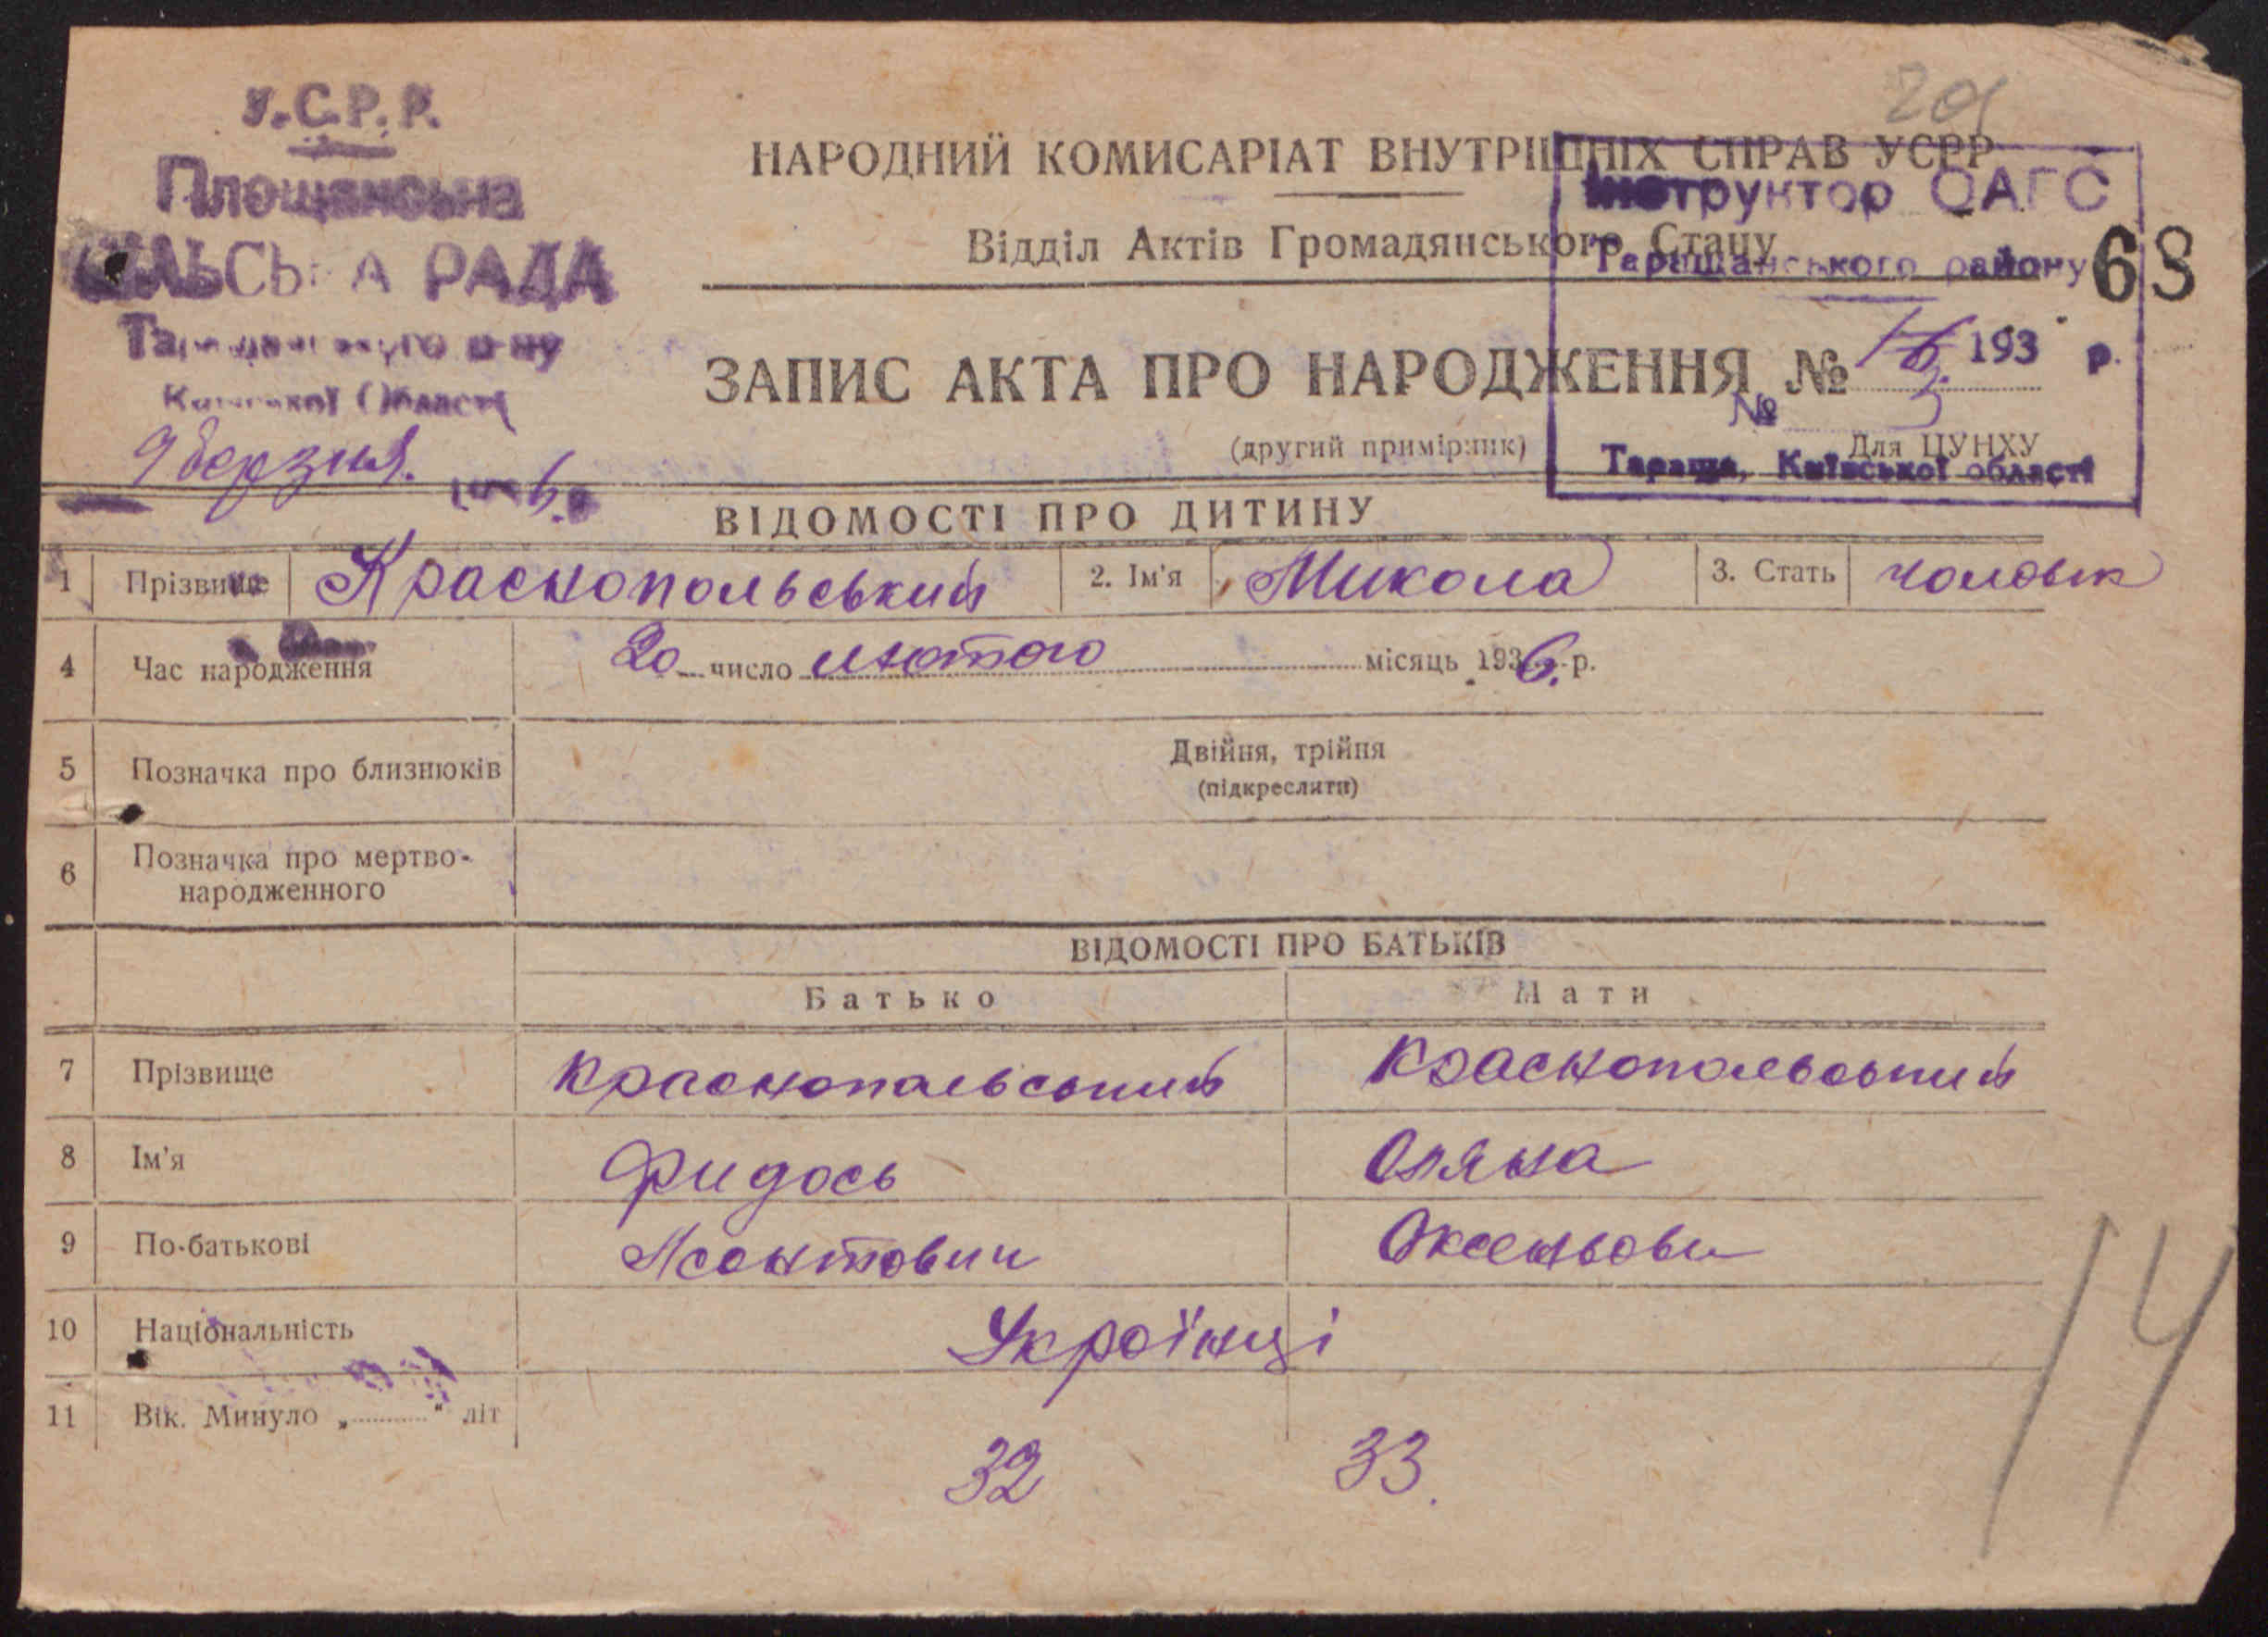 У.С.Р.Р.
Площанська
СІЛЬСЬКА РАДА
Таращанського р-ну
Київської Області
9 березня. 6 р
201
НАРОДНИЙ КОМИСАРІАТ ВНУТРІШНІХ СПРАВ УСРР
Відділ Актів Громадянського Стану
Інструктор ОАГС
Таращанського району
68
193 р.
№
Тараща, Київської області
ЗАПИС АКТА ПРО НАРОДЖЕННЯ №
(другий примірник)
Для ЦУНХУ
ВІДОМОСТІ ПРО ДИТИНУ
1 Прізвище Краснопольський 2. Ім'я Микола 3. Стать чоловік
4 Час народження 20 число лютого місяць 1936. р.
5 Позначка про близнюків Двійня, трійня
(підкреслити)
6 Позначка про мертво-
народженного
ВІДОМОСТІ ПРО БАТЬКІВ
Батько Мати
7 Прізвище Краснопольський Краснопольський
8 Ім'я Фидось Оляна
9 По-батькові Леонтович Оксеньови
10 Національність Українці
11 Вік. Минуло „ " літ
32 33.
14